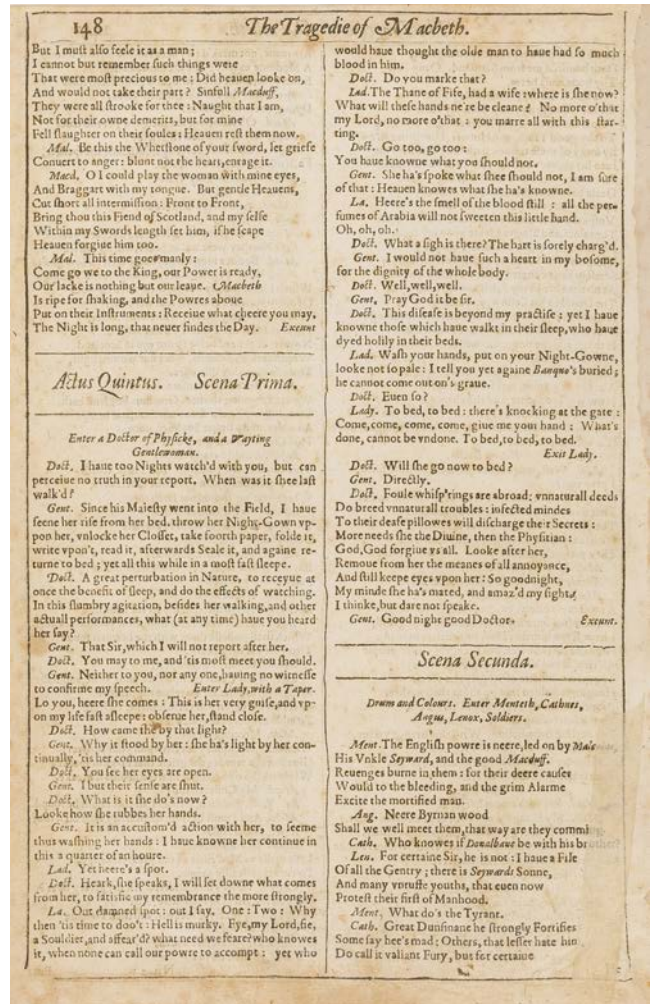 148
The Tragedie of Macbeth.
But I must also feele it as a man;
I cannot but remember such things were
That were most precious to me: Did heauen looke on,
And would not take their part? Sinfull Macduff,
They were all strooke for thee: Naught that I am,
Not for their owne demerits, but for mine
Fell slaughter on their soules: Heauen rest them now.
Mal. Be this the Whetstone of your sword, let griefe
Conuert to anger: blunt not the heart, enrage it.
Macd. O I could play the woman with mine eyes,
And Braggart with my tongue. But gentle Heauens,
Cut short all intermission: Front to Front,
Bring thou this Fiend of Scotland, and my selfe
Within my Swords length set him, if he scape
Heauen forgiue him too.
Mal. This time goes manly:
Come go we to the King, our Power is ready,
Our lacke is nothing but our leaue. Macbeth
Is ripe for shaking, and the Powres aboue
Put on their Instruments: Receiue what cheere you may,
The Night is long, that neuer findes the Day. Exeunt
Actus Quintus. Scena Prima.
Enter a Doctor of Physicke, and a Wayting
Gentlewoman.
Doct. I haue too Nights watch'd with you, but can
perceiue no truth in your report. When was it shee last
walk'd?
Gent. Since his Maiesty went into the Field, I haue
seene her rise from her bed, throw her Night-Gown vp-
pon her, vnlocke her Closset, take foorth paper, folde it,
write vpon't, read it, afterwards Seale it, and againe re-
turne to bed; yet all this while in a most fast sleepe.
Doct. A great perturbation in Nature, to receyue at
once the benefit of sleep, and do the effects of watching.
In this slumbry agitation, besides her walking, and other
actuall performances, what (at any time) haue you heard
her say?
Gent. That Sir, which I will not report after her.
Doct. You may to me, and 'tis most meet you should.
Gent. Neither to you, nor any one, hauing no witnesse
to confirme my speech. Enter Lady, with a Taper.
Lo you, heere she comes: This is her very guise, and vp-
on my life fast asleepe: obserue her, stand close.
Doct. How came she by that light?
Gent. Why it stood by her: she ha's light by her con-
tinually, 'tis her command.
Doct. You see her eyes are open.
Gent. I but their sense are shut.
Doct. What is it she do's now?
Looke how she rubbes her hands.
Gent. It is an accustom'd action with her, to seeme
thus washing her hands: I haue knowne her continue in
this a quarter of an houre.
Lad. Yet heere's a spot.
Doct. Heark, she speaks, I will set downe what comes
from her, to satisfie my remembrance the more strongly.
La. Out damned spot: out I say. One: Two: Why
then 'tis time to doo't: Hell is murky. Fye, my Lord, fie,
a Souldier, and affear'd? what need we feare? who knowes
it, when none can call our powre to accompt: yet who
would haue thought the olde man to haue had so much
blood in him.
Doct. Do you marke that?
Lad. The Thane of Fife, had a wife: where is she now?
What will these hands ne're be cleane? No more o'that
my Lord, no more o'that: you marre all with this star-
ting.
Doct. Go too, go too:
You haue knowne what you should not.
Gent. She ha's spoke what shee should not, I am sure
of that: Heauen knowes what she ha's knowne.
La. Heere's the smell of the blood still: all the per-
fumes of Arabia will not sweeten this little hand.
Oh, oh, oh.
Doct. What a sigh is there? The hart is sorely charg'd.
Gent. I would not haue such a heart in my bosome,
for the dignity of the whole body.
Doct. Well, well, well.
Gent. Pray God it be sir.
Doct. This disease is beyond my practise: yet I haue
knowne those which haue walkt in their sleep, who haue
dyed holily in their beds.
Lad. Wash your hands, put on your Night-Gowne,
looke not so pale: I tell you yet againe Banquo's buried;
he cannot come out on's graue.
Doct. Euen so?
Lady. To bed, to bed: there's knocking at the gate:
Come, come, come, come, giue me your hand: What's
done, cannot be vndone. To bed, to bed, to bed.
Exit Lady.
Doct. Will she go now to bed?
Gent. Directly.
Doct. Foule whisp'rings are abroad: vnnaturall deeds
Do breed vnnaturall troubles: infected mindes
To their deafe pillowes will discharge their Secrets:
More needs she the Diuine, then the Physitian:
God, God forgiue vs all. Looke after her,
Remoue from her the meanes of all annoyance,
And still keepe eyes vpon her: So goodnight,
My minde she ha's mated, and amaz'd my sight.
I thinke, but dare not speake.
Gent. Good night good Doctor. Exeunt.
Scena Secunda.
Drum and Colours. Enter Menteth, Cathnes,
Angus, Lenox, Soldiers.
Ment. The English powre is neere, led on by
His Vnkle Seyward, and the good Macduff.
Reuenges burne in them: for their deere causes
Would to the bleeding, and the grim Alarme
Excite the mortified man.
Ang. Neere Byrnan wood
Shall we well meet them, that way are they
Cath. Who knowes if Donalbane be with his
Len. For certaine Sir, he is not: I haue a File
Of all the Gentry; there is Seywards Sonne,
And many vnruffe youths, that euen now
Protest their first of Manhood.
Ment. What do's the Tyrant.
Cath. Great Dunsinane he strongly Fortifies
Some say hee's mad; Others, that lesser hate him
Do call it valiant Fury, but for certaine